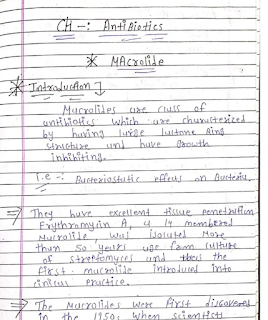 CH -: Antibiotics
* Macrolide
* Introduction ]
Macrolides are class of
antibiotics which are characterized
by having large lactone ring
structure and have Growth
inhibiting.
i.e -: Bacteriostatic effects on Bacteria.
⇒ They have excellent tissue penetration
Erythromycin A, a 14 membered
Macrolide, was isolated more
than 50 years ago from culture
of streptomyces and the
first macrolide introduced into
clinical practice.
⇒ The Macrolides were first discovered
in the 1950s when scientists